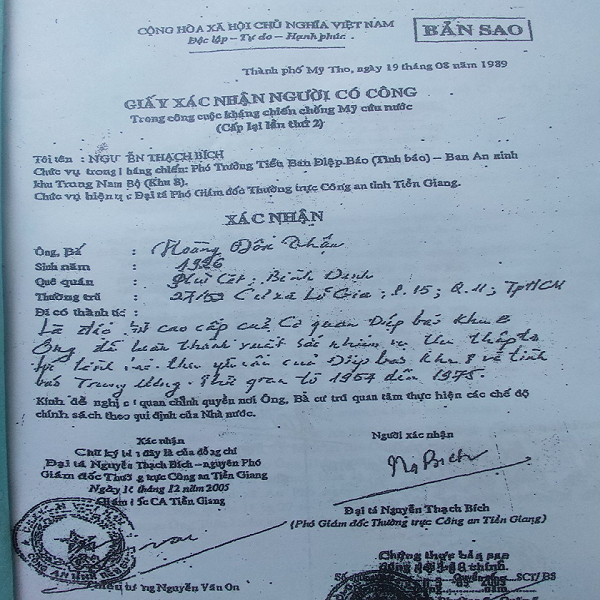 CỘNG HÒA XÃ HỘI CHỦ NGHĨA VIỆT NAM
Độc lập - Tự do - Hạnh phúc
BẢN SAO
Thành phố Mỹ Tho, ngày 19 tháng 08 năm 1989
GIẤY XÁC NHẬN NGƯỜI CÓ CÔNG
Trong công cuộc kháng chiến chống Mỹ cứu nước
(Cấp lại lần thứ 2)
Tôi tên : NGUYỄN THẠCH BÍCH
Chức vụ trong kháng chiến: Phó Trưởng Tiểu Ban Điệp Báo (Tình báo) – Ban An ninh
khu Trung Nam Bộ (Khu 8).
Chức vụ hiện tại: Đại tá Phó Giám đốc Thường trực Công an tỉnh Tiền Giang.
XÁC NHẬN
Ông, Bà : Hoàng Đôn
Sinh năm : 1926
Quê quán : Phù Cát, Bình Định
Thường trú : Cư xá Lữ Gia, P. 15, Q. 11, TpHCM
Đã có thành tích :
Là cao cấp của Cơ quan Điệp báo Khu 8
Ông đã luôn thành xuất sắc nhiệm vụ thu thập
yêu cầu của Điệp báo Khu 8 và tình
báo Trung Ương. Thời gian từ 1954 đến 1975.
Kính đề nghị cơ quan chính quyền nơi Ông, Bà cư trú quan tâm thực hiện các chế độ
chính sách theo qui định của Nhà nước.
Xác nhận
Chữ ký bên đây là của đồng chí
Đại tá Nguyễn Thạch Bích – nguyên Phó
Giám đốc Thường trực Công an Tiền Giang
tháng 12 năm 2005
Giám đốc CA Tiền Giang
Nguyễn Văn On
Người xác nhận
Ng Bích
Đại tá Nguyễn Thạch Bích
(Phó Giám đốc Thường trực Công an Tiền Giang)
Chứng thực bản sao
đúng với bản chính.
SCT/BS